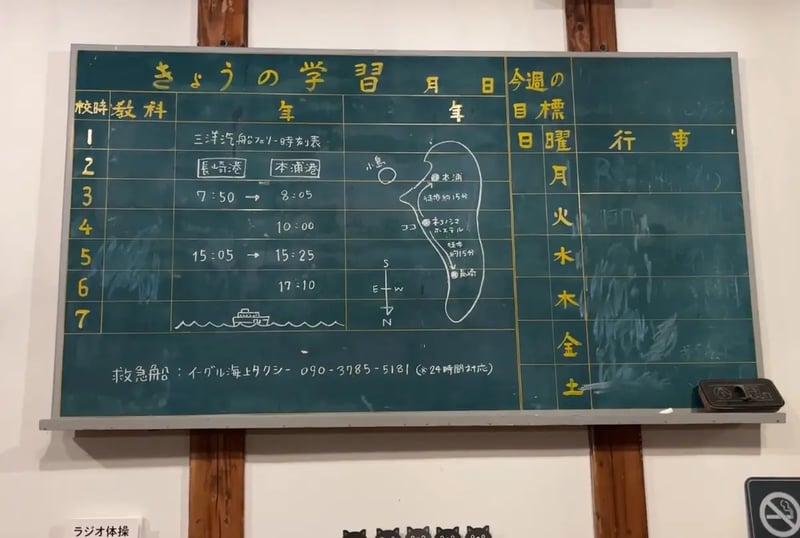 きょうの学習 月 日
校時 教科 年 年
1 三洋汽船フェリー時刻表
2 長崎港 本浦港
3 7:50 → 8:05
4 10:00
5 15:05 → 15:25
6 17:10
7
小島
本浦
徒歩約15分
ココ
ネコノシマホステル
徒歩
約15分
長崎
S
E W
N
救急船:イーグル海上タクシー 090-3785-5181 (※24時間対応)
今週の
目標
日 曜 行事
月
火
水
木
金
土
ラジオ体操